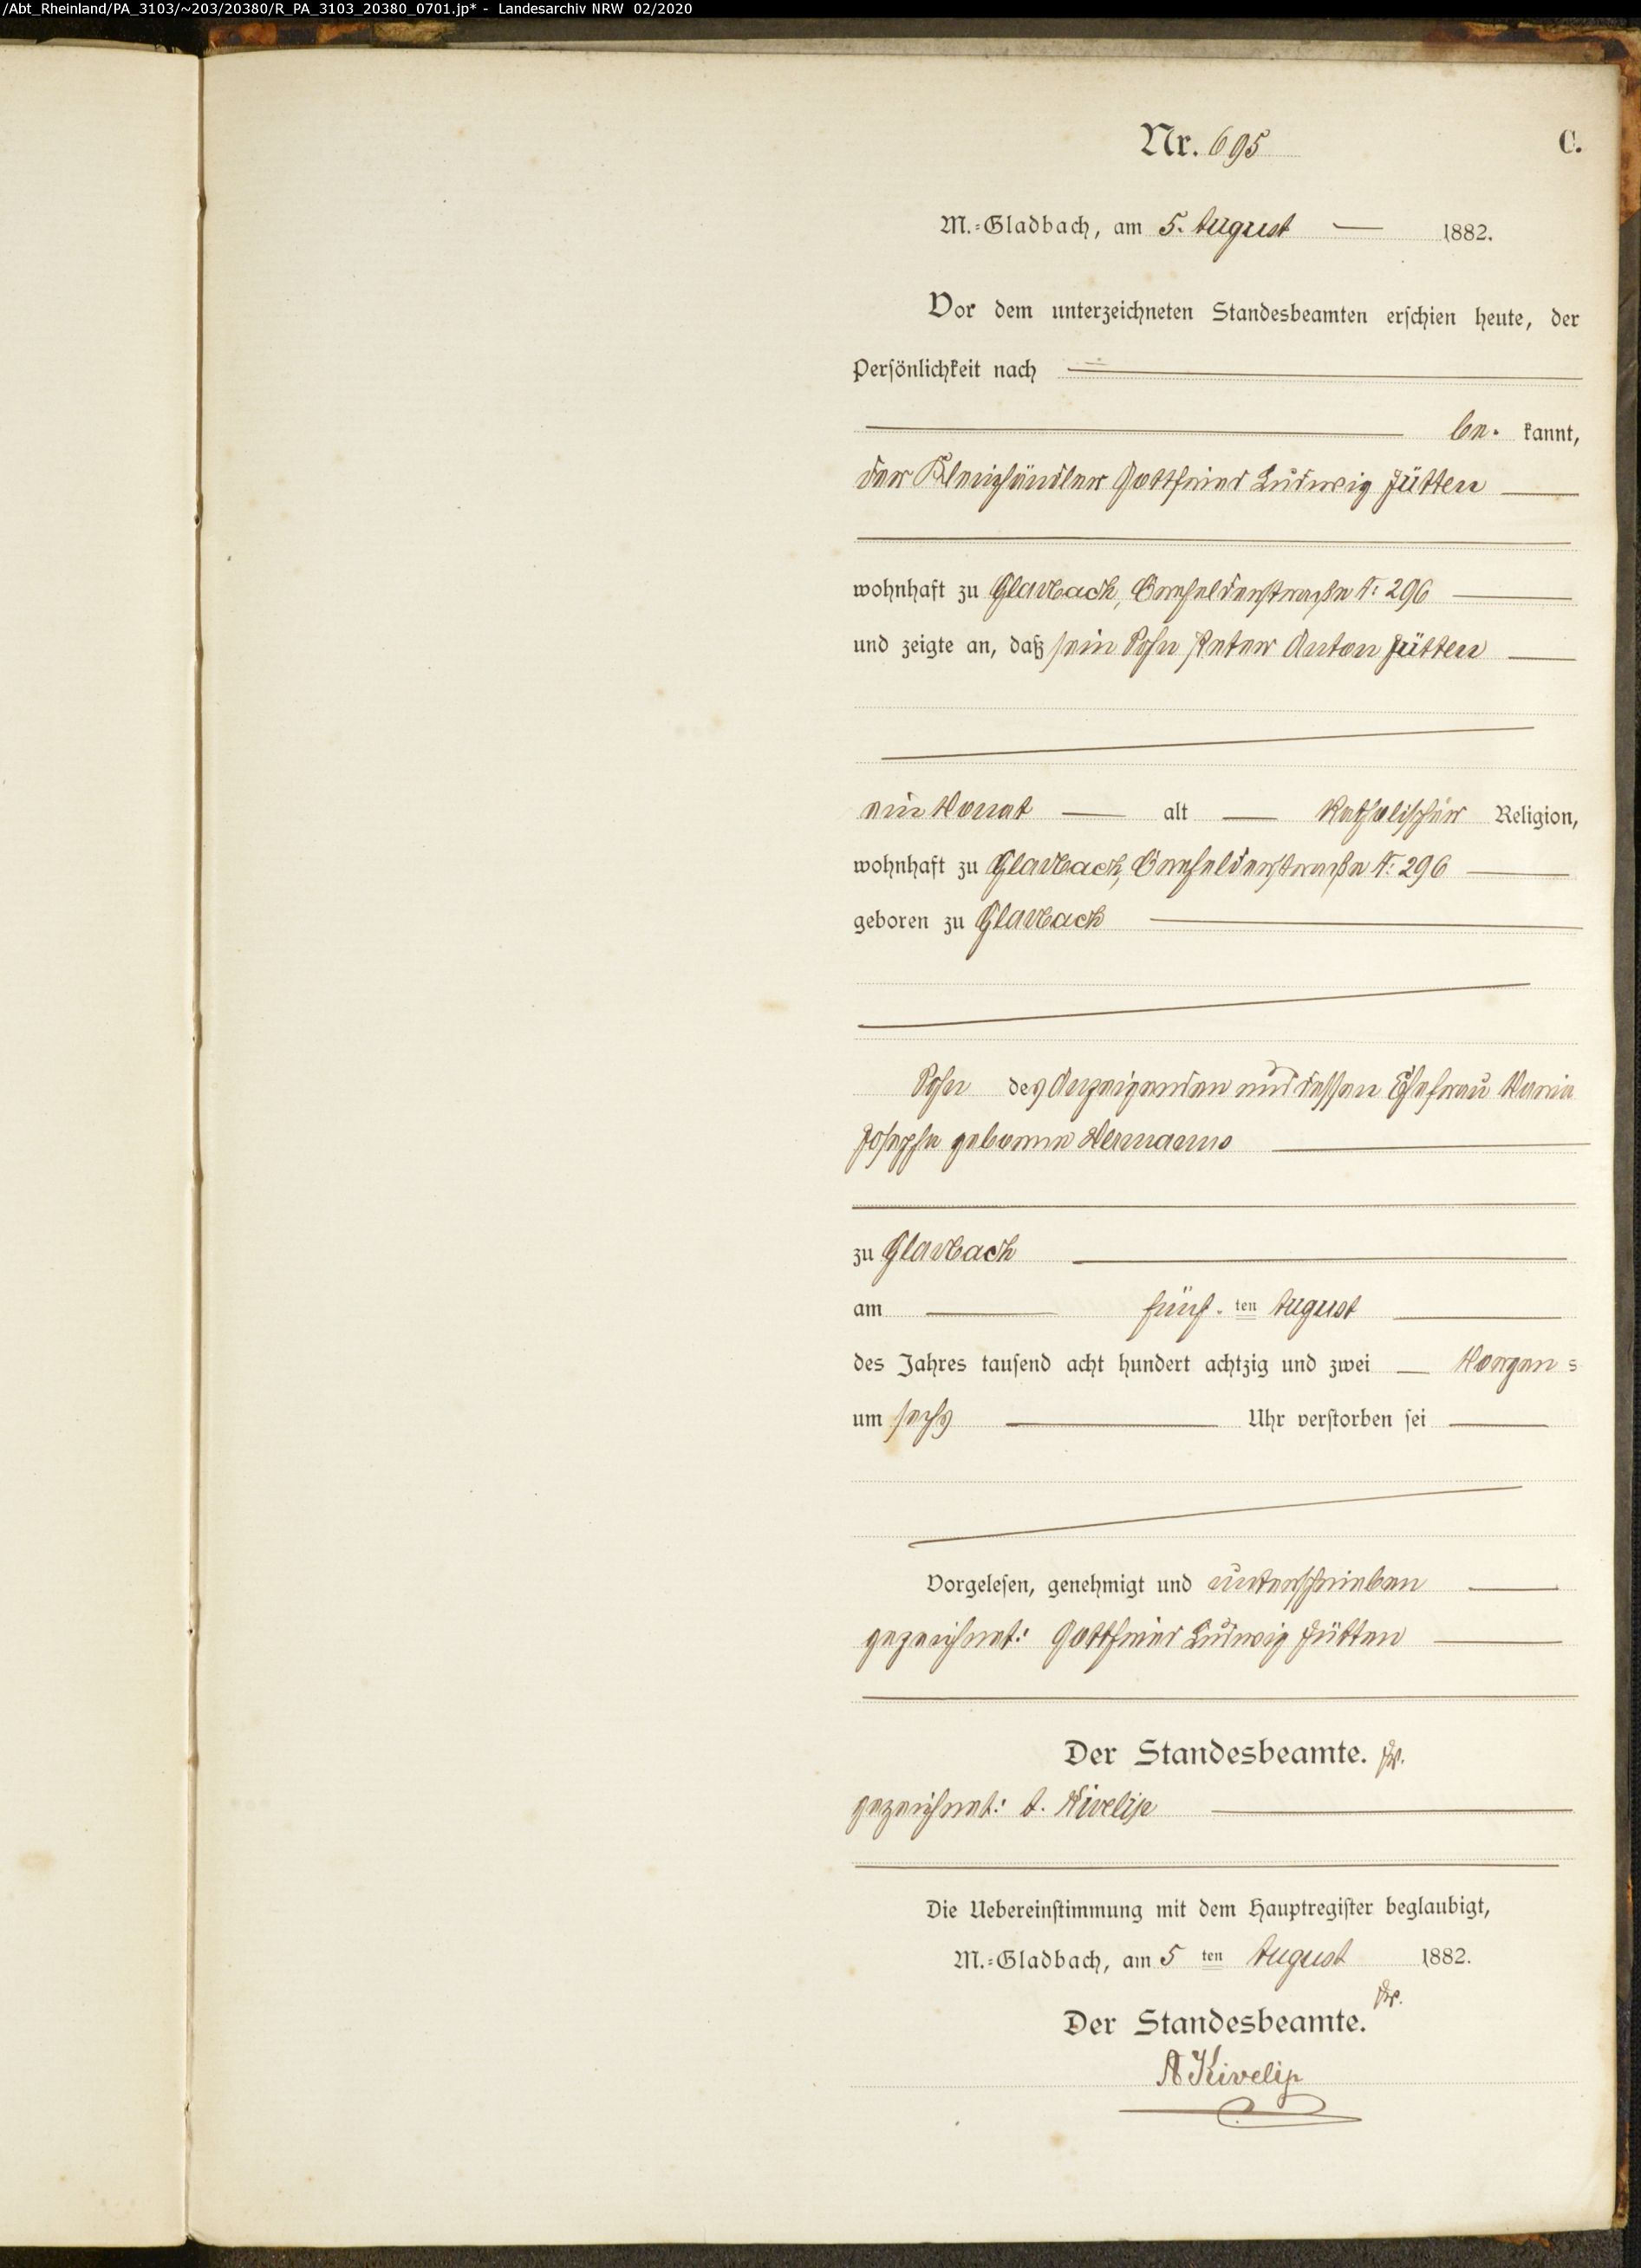 /Abt_Rheinland/PA_3103/~203/20380/R_PA_3103_20380_0701.jp* - Landesarchiv NRW 02/2020
Nr. 695
C.
M.=Gladbach, am 5. August 1882.
Vor dem unterzeichneten Standesbeamten erschien heute, der
Persönlichkeit nach
be- kannt,
der Kleinhändler Gottfried Ludwig Jütten
wohnhaft zu Gladbach, Crefelderstraße N: 296
und zeigte an, daß sein Sohn Peter Anton Jütten
ein Monat alt katholischer Religion,
wohnhaft zu Gladbach, Crefelderstraße N: 296
geboren zu Gladbach
Sohn des Anzeigenden und dessen Ehefrau Maria
Josepha geborene Hermanns
zu Gladbach
am fünf- ten August
des Jahres tausend acht hundert achtzig und zwei Morgens
um sechs Uhr verstorben sei
Vorgelesen, genehmigt und unterschrieben
gezeichnet: Gottfried Ludwig Jütten
Der Standesbeamte.
gezeichnet: A. Kivelip
Die Uebereinstimmung mit dem Hauptregister beglaubigt,
M.=Gladbach, am 5 ten August 1882.
Der Standesbeamte.
A Kivelip